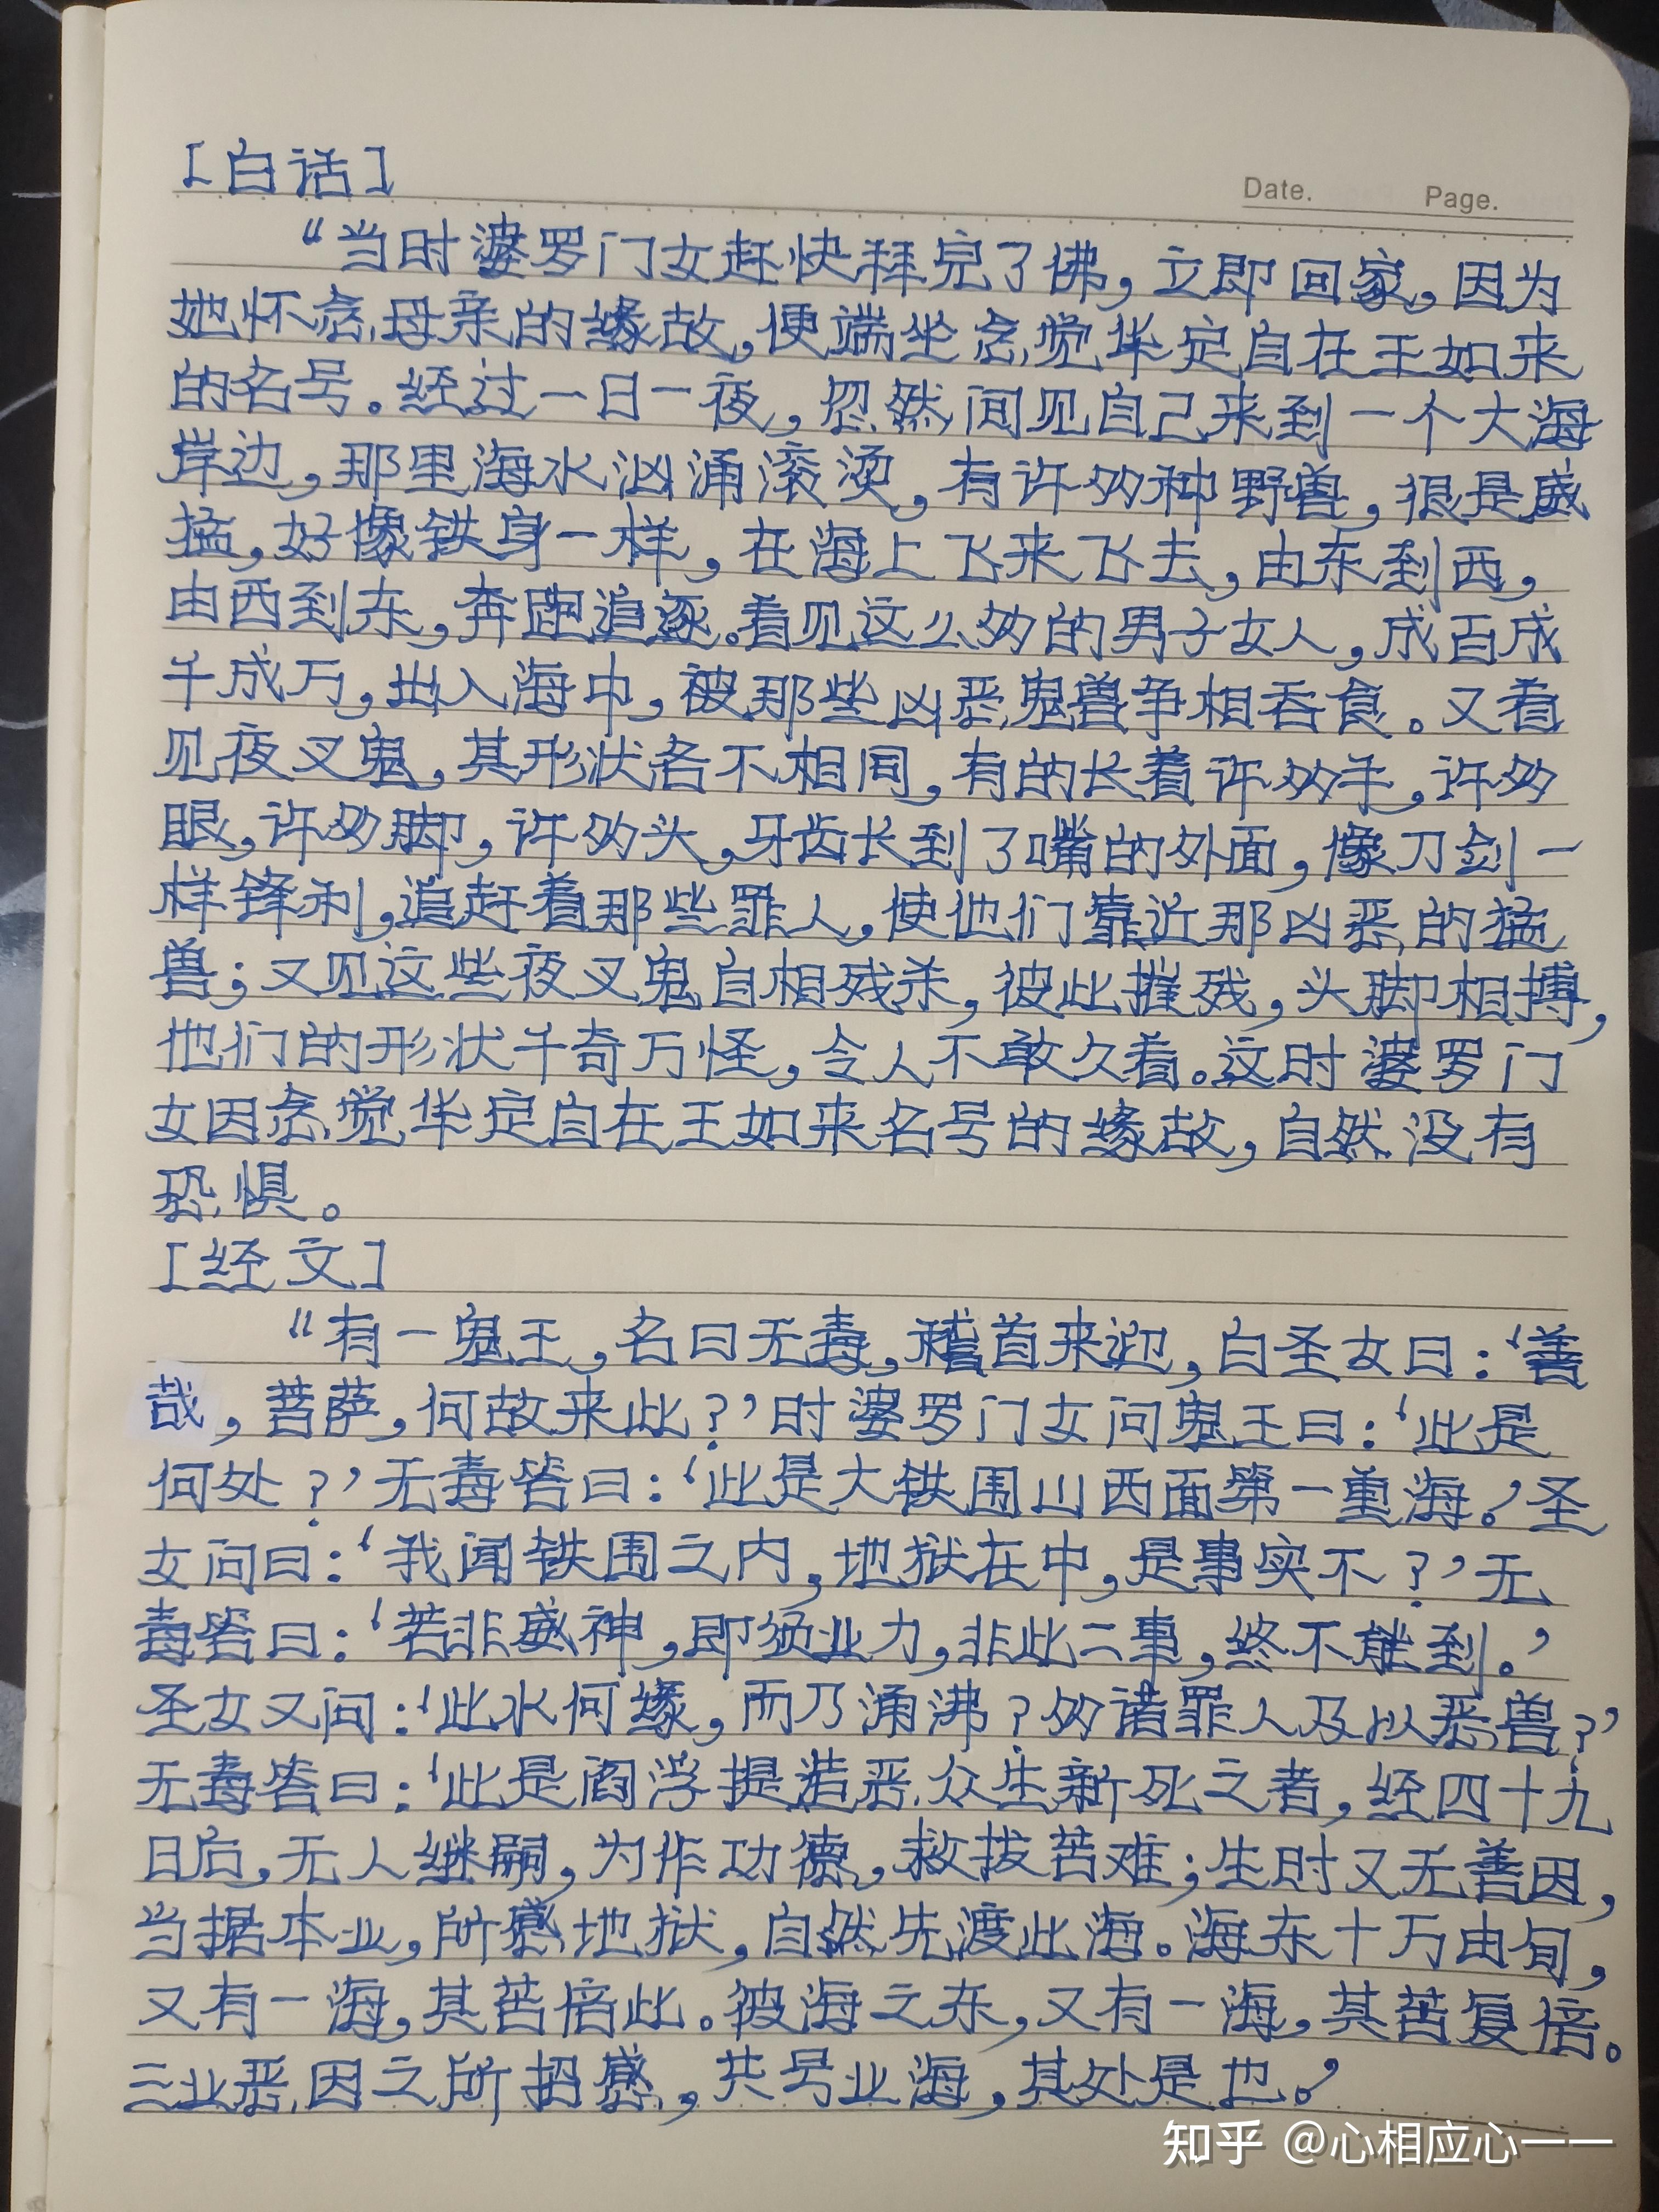 [白话]
Date.    Page.
“当时婆罗门女赶快拜完了佛，立即回家，因为
她怀念母亲的缘故，便端坐念觉华定自在王如来
的名号。经过一日一夜，忽然间见自己来到一个大海
岸边，那里海水汹涌滚烫，有许多种野兽，很是威
猛，好像铁身一样，在海上飞来飞去，由东到西，
由西到东，奔跑追逐。看见这么多的男子女人，成百成
千成万，出入海中，被那些凶恶鬼兽争相吞食。又看
见夜叉鬼，其形状各不相同，有的长着许多手，许多
眼，许多脚，许多头，牙齿长到了嘴的外面，像刀剑一
样锋利，追赶着那些罪人，使他们靠近那凶恶的猛
兽；又见这些夜叉鬼自相残杀，彼此摧残，头脚相搏，
他们的形状千奇万怪，令人不敢久看。这时婆罗门
女因念觉华定自在王如来名号的缘故，自然没有
恐惧。
[经文]
“有一鬼王，名曰无毒，稽首来迎，白圣女曰：‘善
哉，菩萨，何故来此？’时婆罗门女问鬼王曰：‘此是
何处？’无毒答曰：‘此是大铁围山西面第一重海。’圣
女问曰：‘我闻铁围之内，地狱在中，是事实不？’无
毒答曰：‘若非威神，即须业力，非此二事，终不能到。’
圣女又问：‘此水何缘，而乃涌沸？多诸罪人及以恶兽？’
无毒答曰：‘此是阎浮提造恶众生新死之者，经四十九
日后，无人继嗣，为作功德，救拔苦难；生时又无善因，
当据本业，所感地狱，自然先渡此海。海东十万由旬，
又有一海，其苦倍此。彼海之东，又有一海，其苦复倍。
三业恶因之所招感，共号业海，其处是也。’
知乎 @心相应心一一